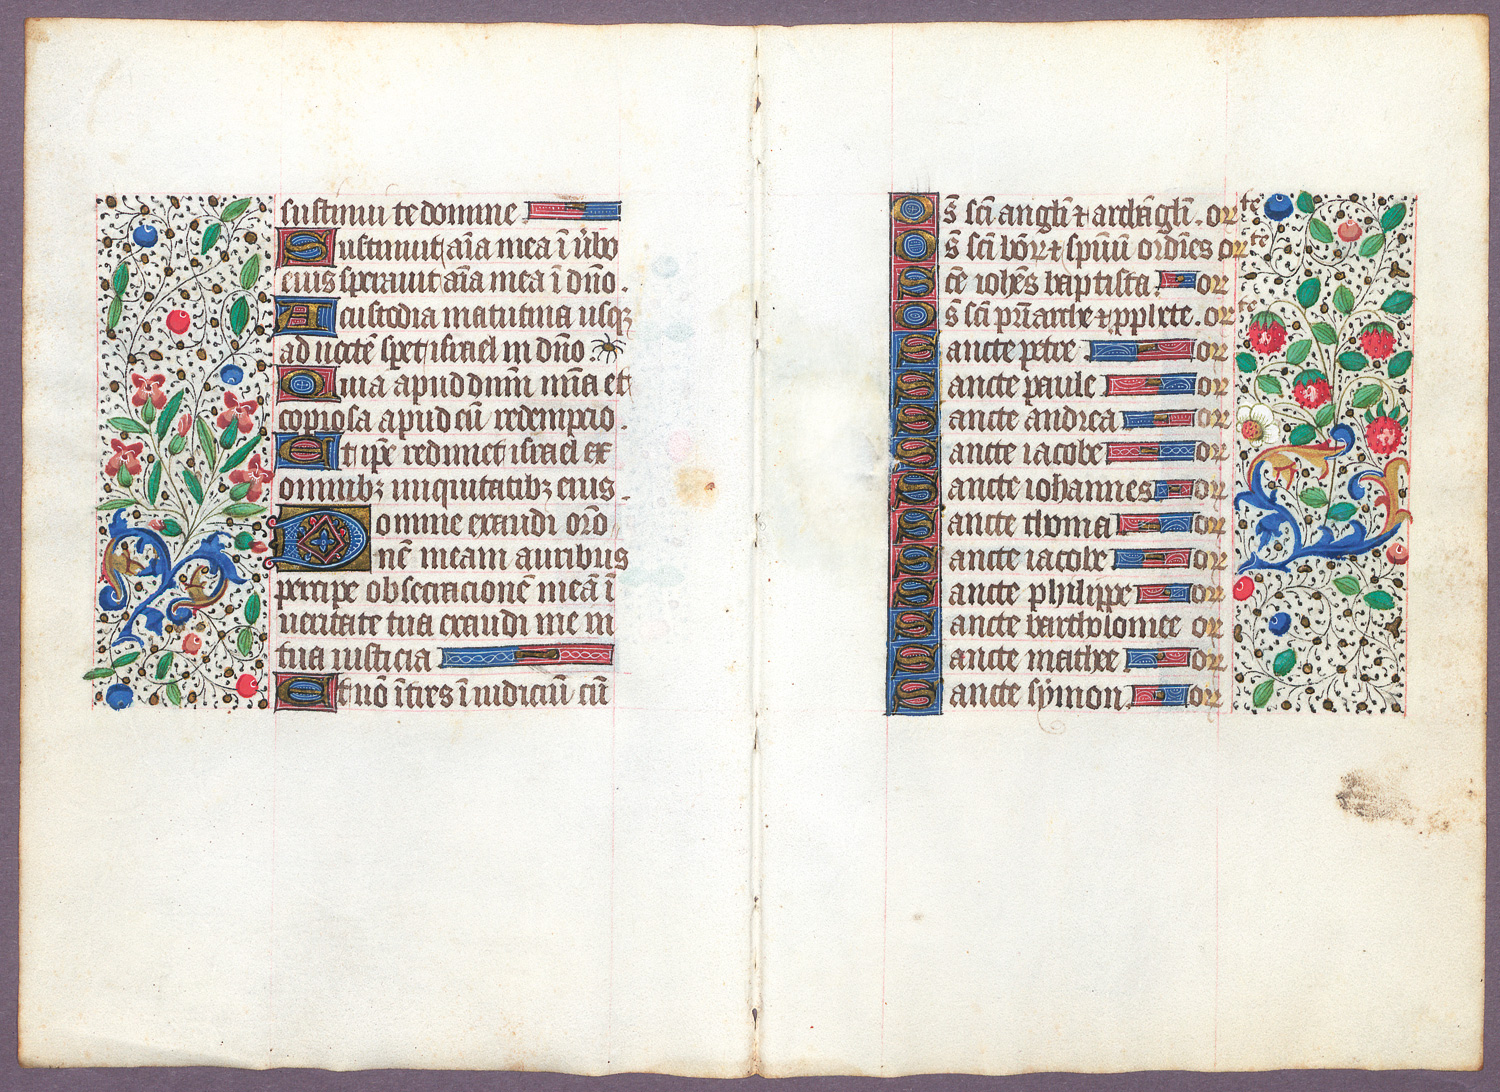 sustinui te domine
Sustinuit aĩa mea ĩ ṽbo
eius speravit aĩa mea ĩ dño.
A custodia matutina usqꝫ
ad noctẽ spet israel in dño.
Quia apud dnm̃ mĩa et
copiosa apud eũ redempcio.
Et ip̃e redimet israel ex
omnibꝫ iniquitatibꝫ eius.
Domine exaudi orõ
nẽ meam auribus
percipe obsecracionẽ meã ĩ
veritate tua exaudi me in
tua iusticia
Et nõ ĩtres ĩ iudiciũ cũ
Om̃s sc̃i angl̃i ⁊ archãgl̃i. orate
Om̃s sc̃i bõꝝ ⁊ spũũ ordĩes orate
Sc̃e ioh̃es baptista. or
Om̃s sc̃i pr̃iarche ⁊ ꝓph̃ete. orate
Sancte petre or
Sancte paule or
Sancte andrea or
Sancte iacobe or
Sancte iohannes or
Sancte thoma or
Sancte iacobe or
Sancte philippe or
Sancte bartholomee or
Sancte mathee or
Sancte symon. or